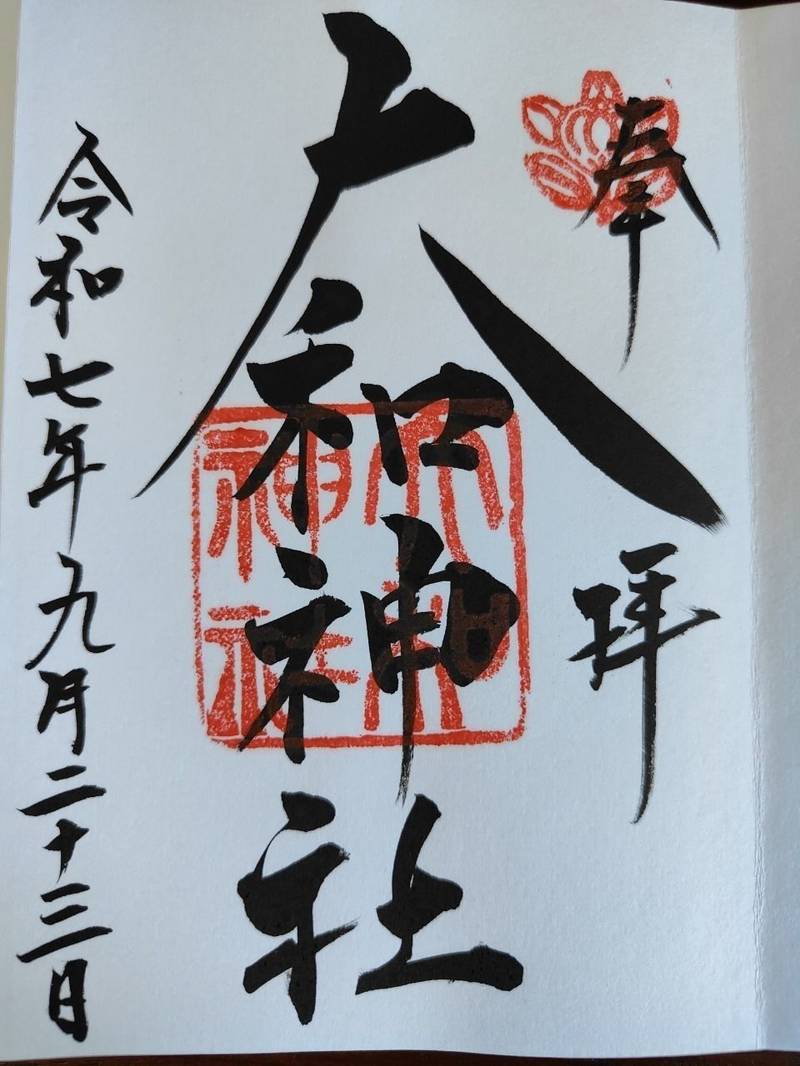 奉拝
大和神社
大和神社
令和七年九月二十三日